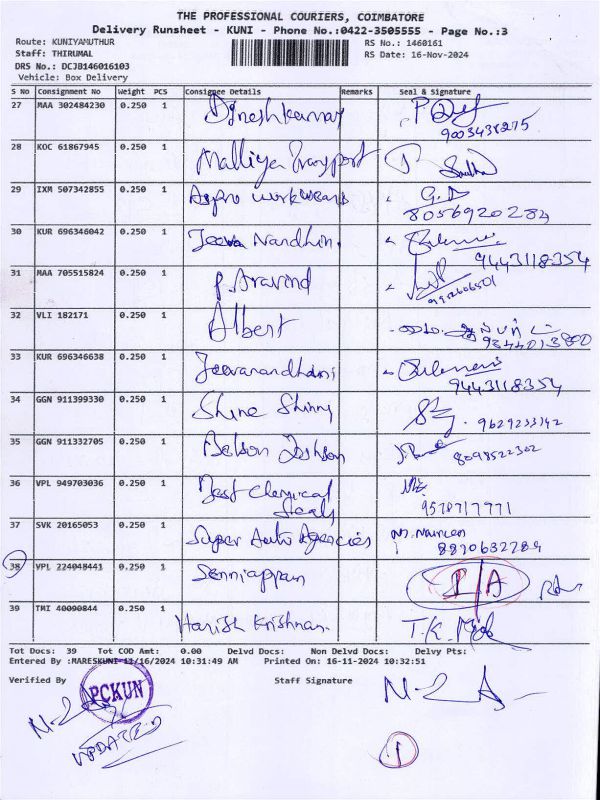 THE PROFESSIONAL COURIERS, COIMBATORE
Delivery Runsheet - KUNI - Phone No.:0422-3505555 - Page No.:3
Route: KUNIYAMUTHUR RS No.: 1460161
Staff: THIRUMAL RS Date: 16-Nov-2024
DRS No.: DCJB146016103
Vehicle: Box Delivery
S No Consignment No Weight PCS Consignee Details Remarks Seal & Signature
27 MAA 302484230 0.250 1 Dineshkumar
9003438275
28 KOC 61867945 0.250 1 Malliga Transport
29 IXM 507342855 0.250 1 Aspro workwears G.D
8056920284
30 KUR 696346042 0.250 1 Jeeva Nandhini
9443118354
31 MAA 705515824 0.250 1 P Aravind
32 VLI 182171 0.250 1 Albert
9344013800
33 KUR 696346638 0.250 1 Jeevanandhani
9443118354
34 GGN 911399330 0.250 1 Shine Shinny
9629233142
35 GGN 911332705 0.250 1 Belson Joshson
8098522302
36 VPL 949703036 0.250 1 Best Chemical Seals
9578717971
37 SVK 20165053 0.250 1 Super Auto Agencies
8870632789
38 VPL 224048441 0.250 1 Senniappan I/A
39 TMI 40090844 0.250 1 Harish Krishnan T.K.
Tot Docs: 39 Tot COD Amt: 0.00 Delvd Docs: Non Delvd Docs: Delvy Pts:
Entered By :MARESKUNI-11/16/2024 10:31:49 AM Printed On: 16-11-2024 10:32:51
Verified By Staff Signature
PCKUN
UPDATED
1